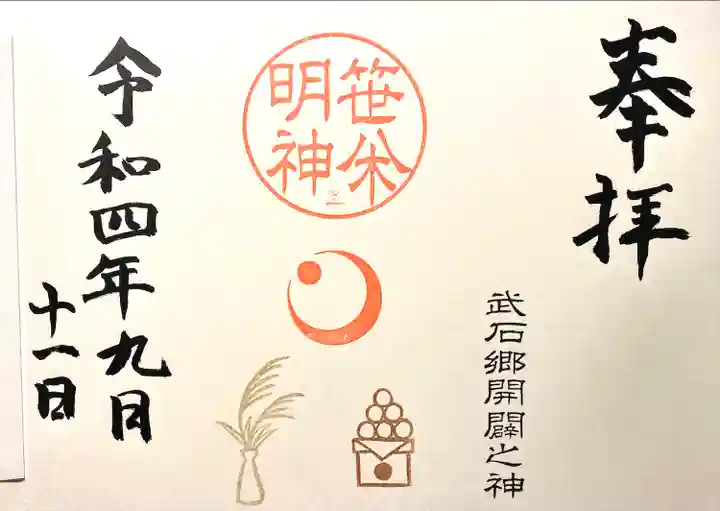 奉拝
武石郷開闢之神
笹
明神
令和四年九月
十一日